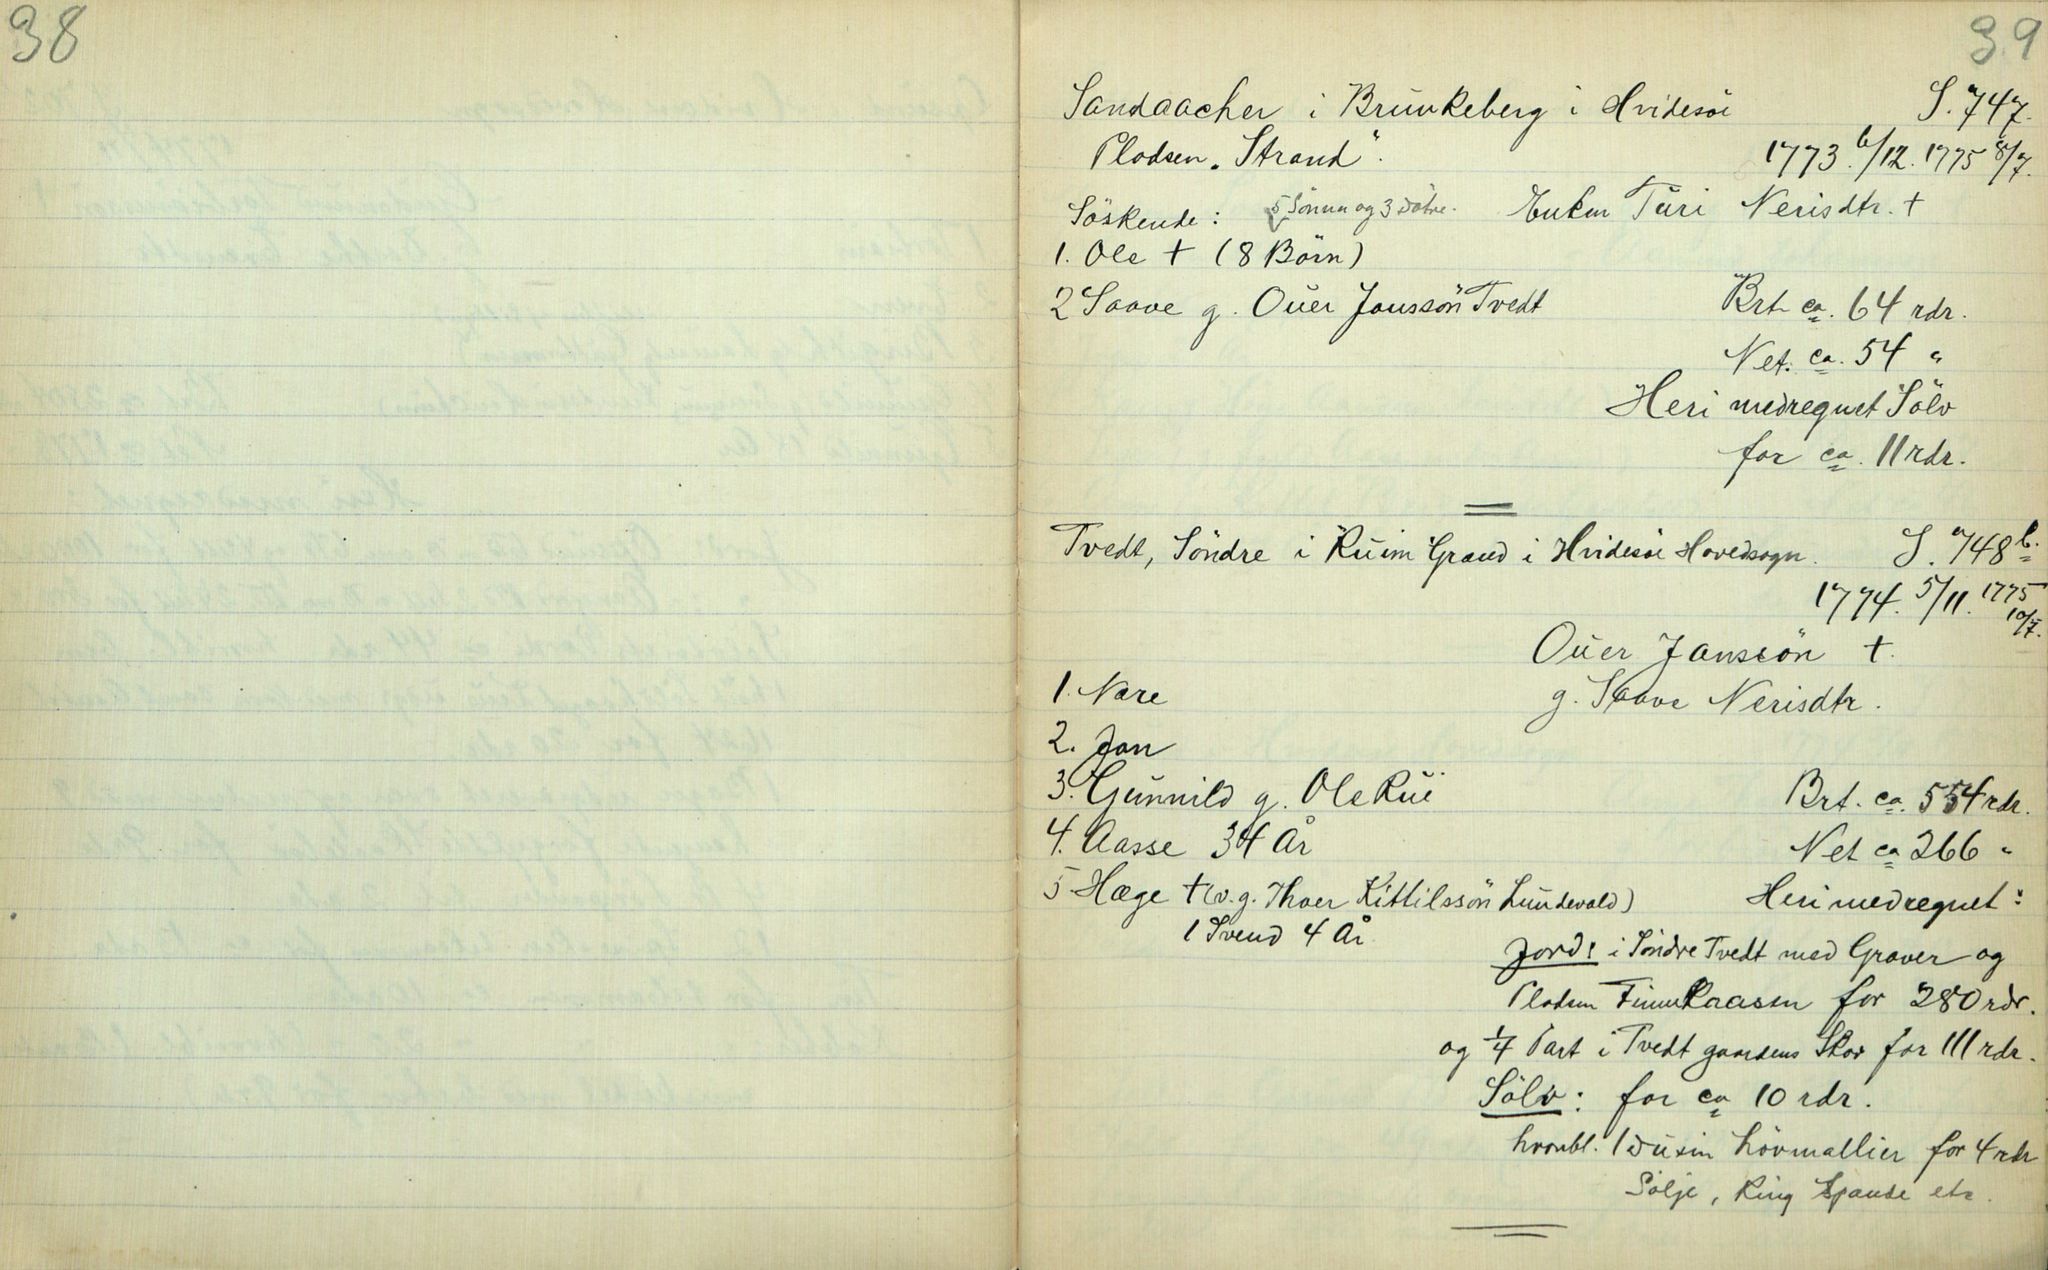 38
39
Sandaacher i Brunkeberg i Hvidesöe S. 747.
Pladsen "Strand". 1773 6/12. 1775 8/7.
Söskende: 5 Sönner og 3 Døtre. Enken Turi Nerisdtr. †
1. Ole † (8 Börn)
2 Saave g. Ouer Jonssön Tvedt Brt ca. 64 rdr.
Net. ca. 54 "
Heri medregnet Sölv
for ca. 11 rdr.
Tvedt, Söndre i Ruim Grand i Hvidesöe Hovedsogn. S. 748 b.
1774. 5/11. 1775 10/7.
Ouer Janssön †.
1. Nare g. Saave Nerisdtr.
2. Jon
3. Gunnild g. Ole Rui Brt. ca. 554 rdr.
4. Aasse 34 År Net ca 266 "
5 Hæge † (v. g. Thoer Kittilssön Lundevald) Heri medregnet:
1 Svend 4 År.
Jord: i Söndre Tvedt med Graver og
Pladsen Finnkaasen for 280 rdr.
og 1/4 Part i Tvedt gaardens Skov for 111 rdr.
Sölv: for ca 10 rdr.
hvoribl. 1 Dusin Lövmallier for 4 rdr
Sölje, Ring Spande etc.